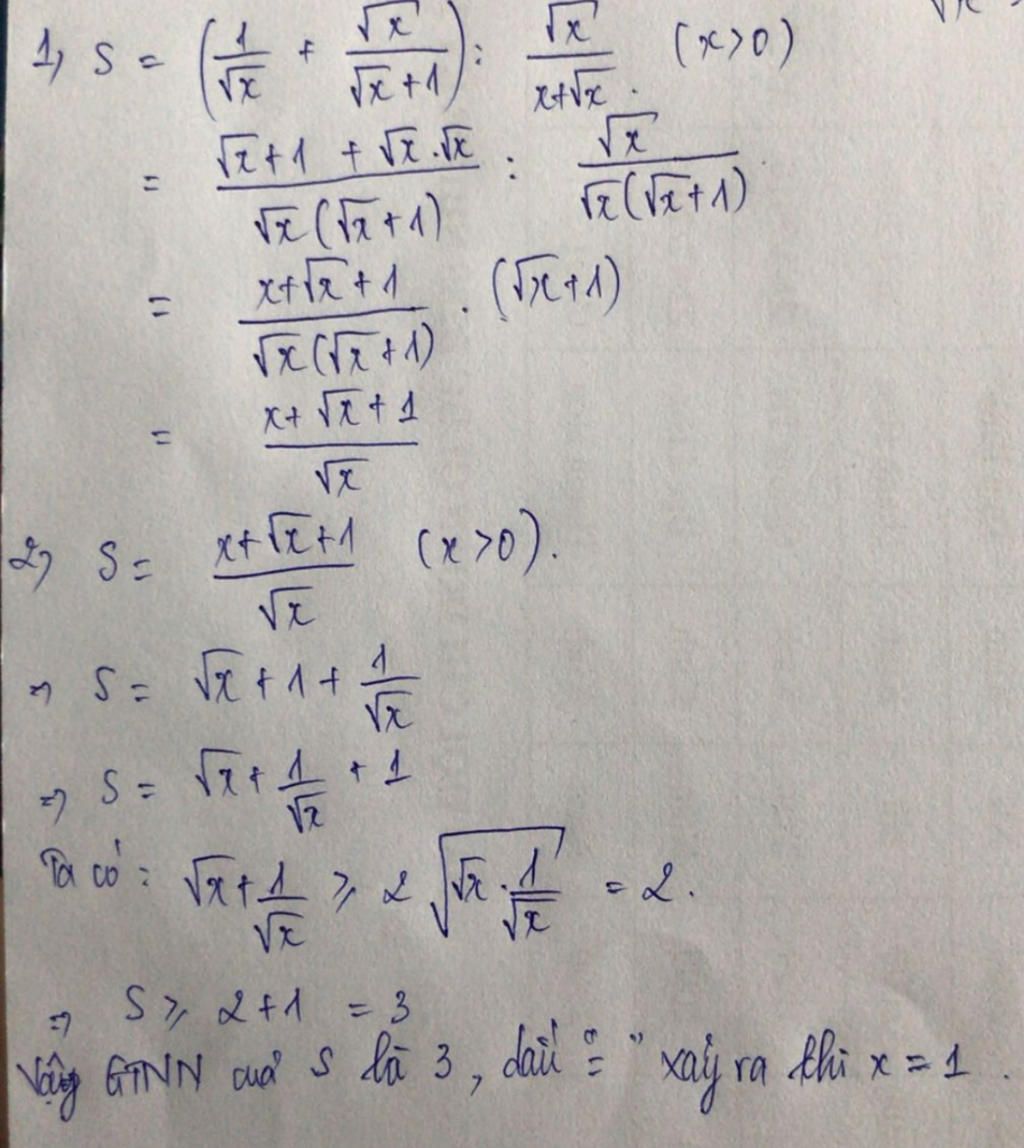 1, S = (1/√x + √x/(√x+1)) : √x/(x+√x) . (x>0)
= (√x+1 + √x.√x)/(√x(√x+1)) : √x/(√x(√x+1))
= (x+√x+1)/(√x(√x+1)) . (√x+1)
= (x+√x+1)/√x
2, S = (x+√x+1)/√x (x>0).
⇒ S = √x + 1 + 1/√x
⇒ S = √x + 1/√x + 1
Ta có: √x + 1/√x ≥ 2√(√x . 1/√x) = 2.
⇒ S ≥ 2+1 = 3
Vậy GTNN của S là 3, dấu "=" xảy ra khi x = 1.